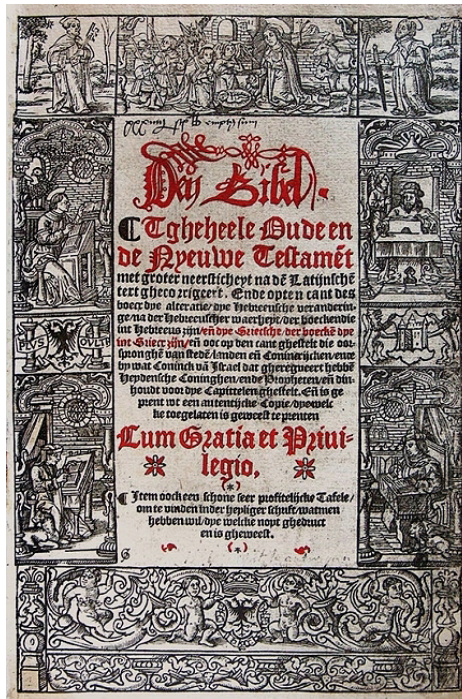 Den Bibel.
Tgheheele Oude en
de Nyeuwe Testamēt
met groter neersticheyt na dē Latijnschē
text ghecorrigeert. Ende opten cant des
boecx dye alteratie/ dye Hebreusche veranderin
ge/na der Hebreuscher waerheyt/der boecken die
int Hebreeus zijn/en̄ dye Griecsche/der boeckē dye
int Griecx zijn/en̄ ooc op den cant ghestelt die oor-
spronghē van stedē/landen en̄ Conincrijcken/ende
by wat Coninck vā Israel dat gheregneert hebbē
Heydensche Coninghen/ende Propheten/en̄ din-
houdt voor dye Capittelen ghestelt. En̄ is ge
prent wt een autentijcke Copie/dye
ke toegelaten is geweest te prenten
Cum Gratia et Priui-
legio.
Item oock een schone seer profitelijcke Tafele/
om te vinden inder heyliger schrift/watmen
hebben wil/dye welcke noyt ghedruct
en is gheweest.